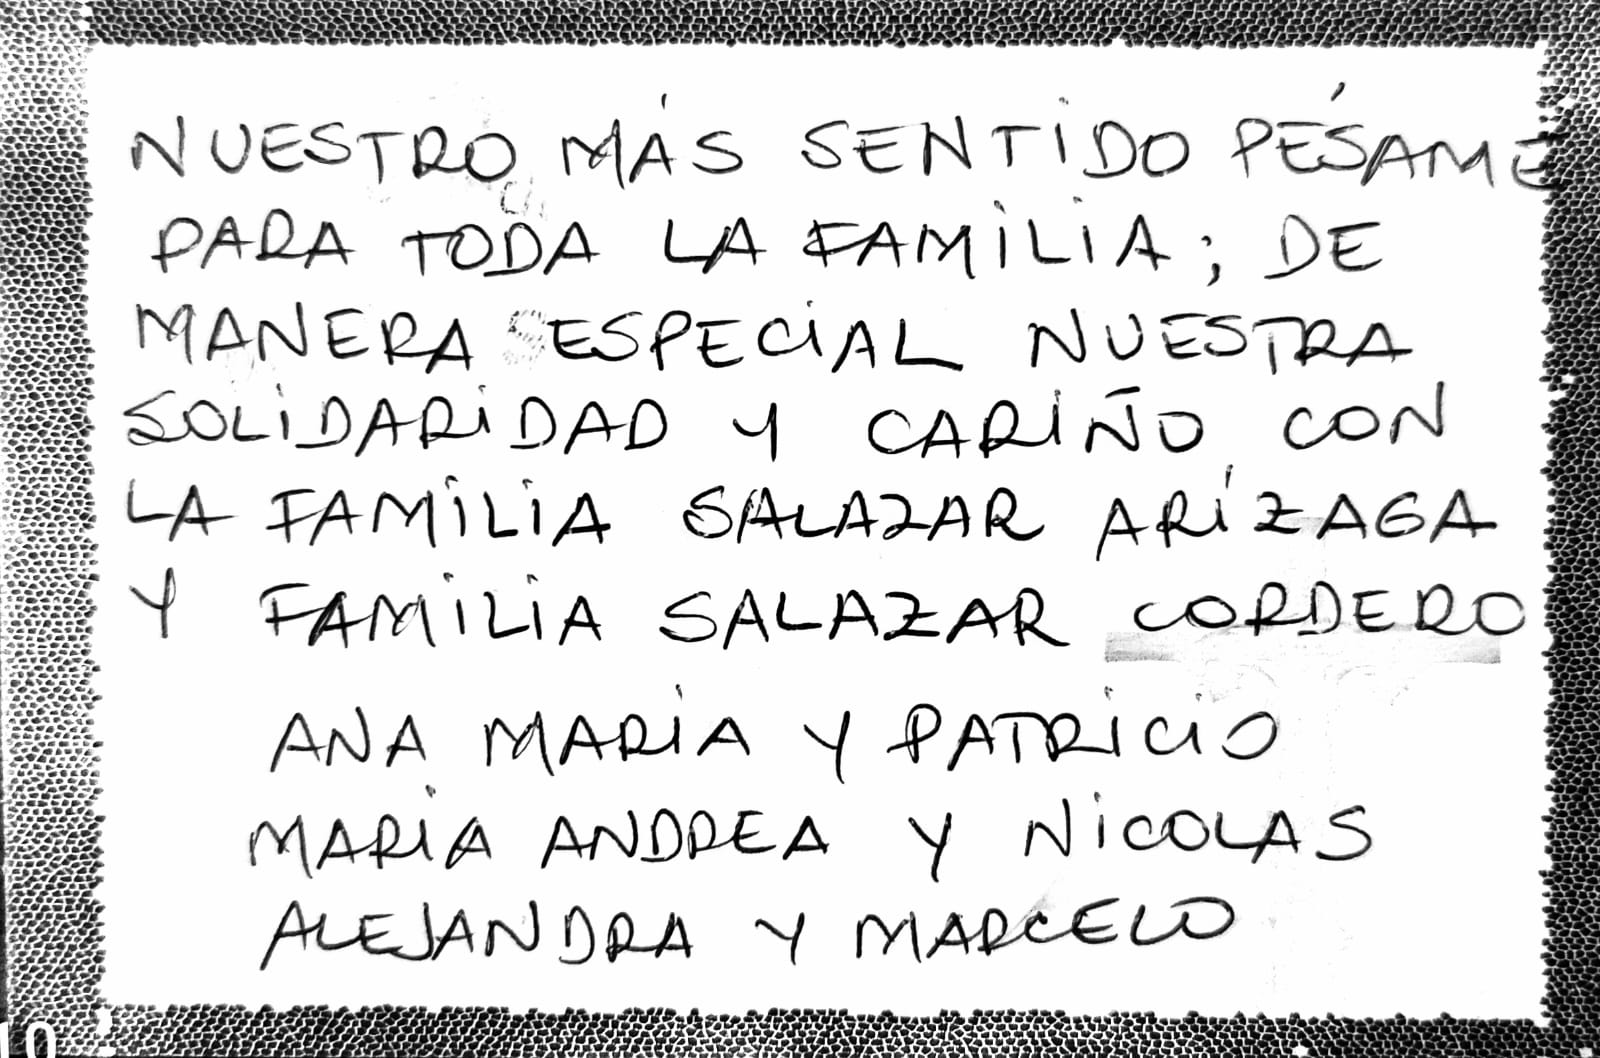 NUESTRO MÁS SENTIDO PÉSAME
PARA TODA LA FAMILIA; DE
MANERA ESPECIAL NUESTRA
SOLIDARIDAD Y CARIÑO CON
LA FAMILIA SALAZAR ARÍZAGA
Y FAMILIA SALAZAR CORDERO
ANA MARÍA Y PATRICIO
MARÍA ANDREA Y NICOLAS
ALEJANDRA Y MARCELO
10